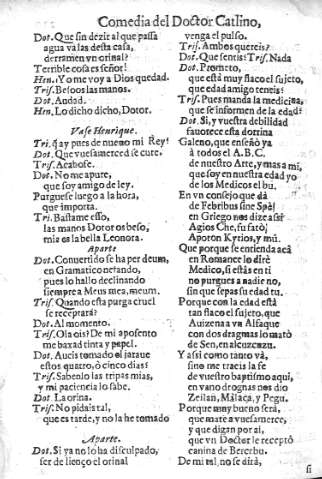 Comedia del Doctor Carlino,
Dot. Que sin dezir al que passa
agua va las desta casa,
derramen vn orinal?
Terrible cosa es señor!
Hen. Yo me voy a Dios quedad.
Tris. Besoos las manos.
Dot. Andad.
Hen. Lo dicho dicho, Dotor.
Vase Henrique.
Tri. q̃ ay pues de nueuo mi Rey?
Dot. Que vuesamerced se cure.
Tris. Acabose.
Dot. No me apure,
que soy amigo de ley.
Purguese luego a la hora,
que importa.
Tri. Bastame esso,
las manos Dotor os beso,
mia es la bella Leonora.
Aparte
Dot. Conuertido se ha per deum,
en Gramatico netando,
pues lo hallo declinando
siempre a Meus mea, meum.
Tris. Quando esta purga cruel
se receptarà?
Dot. Al momento.
Tris. Ola ois? De mi aposento
me baxad tinta y papel.
Dot. Aueis tomado el jaraue
estos quatro, ò cinco dias?
Tris. Sabenlo las tripas mias,
y mi paciencia lo sabe.
Dot. La orina.
Tris. No pidais tal,
que es tarde, y no la he tomado
Aparte.
Dot. Si ya no lo ha disculpado,
ser de lienço el orinal
venga el pulso.
Tris. Ambos quereis?
Dot. Que sentis? Tris. Nada
Dot. Prometo,
que està muy flaco el sujeto,
que edad amigo teneis?
Tris. Pues manda la medicina,
que se informen de la edad?
Dot. Si, y vuestra debilidad
fauorece esta dotrina
Galeno, que enseñò ya
à todos el A.B.C.
de nuestro Arte, y mas a mi,
que soy en nuestra edad yo
de los Medicos el bu.
En vn consejo que dà
de Febribus sine Spèl
en Griego nos dize assi
Agios Che, fu fatò,
Apoton Kyrios, y mù.
Que porque se entienda acà
en Romance lo dirè
Medico, si estàs en ti
no purgues a nadie no,
sin que sepas su edad tu.
Porque con la edad està
tan flaco el sujeto, que
Auizena va Alfaque
con dos dragmas lo matò
de Sen, en alcuzcuzu.
Y assi como tanto và,
sino me tracis la fe
de vuestro baptismo aqui,
en vano drognas nos dio
Zeilan, Malaca, y Pegu.
Porque muy bueno serà,
que mate a vuesamerce,
y que digan por ai,
que vn Doctor le receptò
canina de Bercebu.
De mi tal, no se dirà,
si